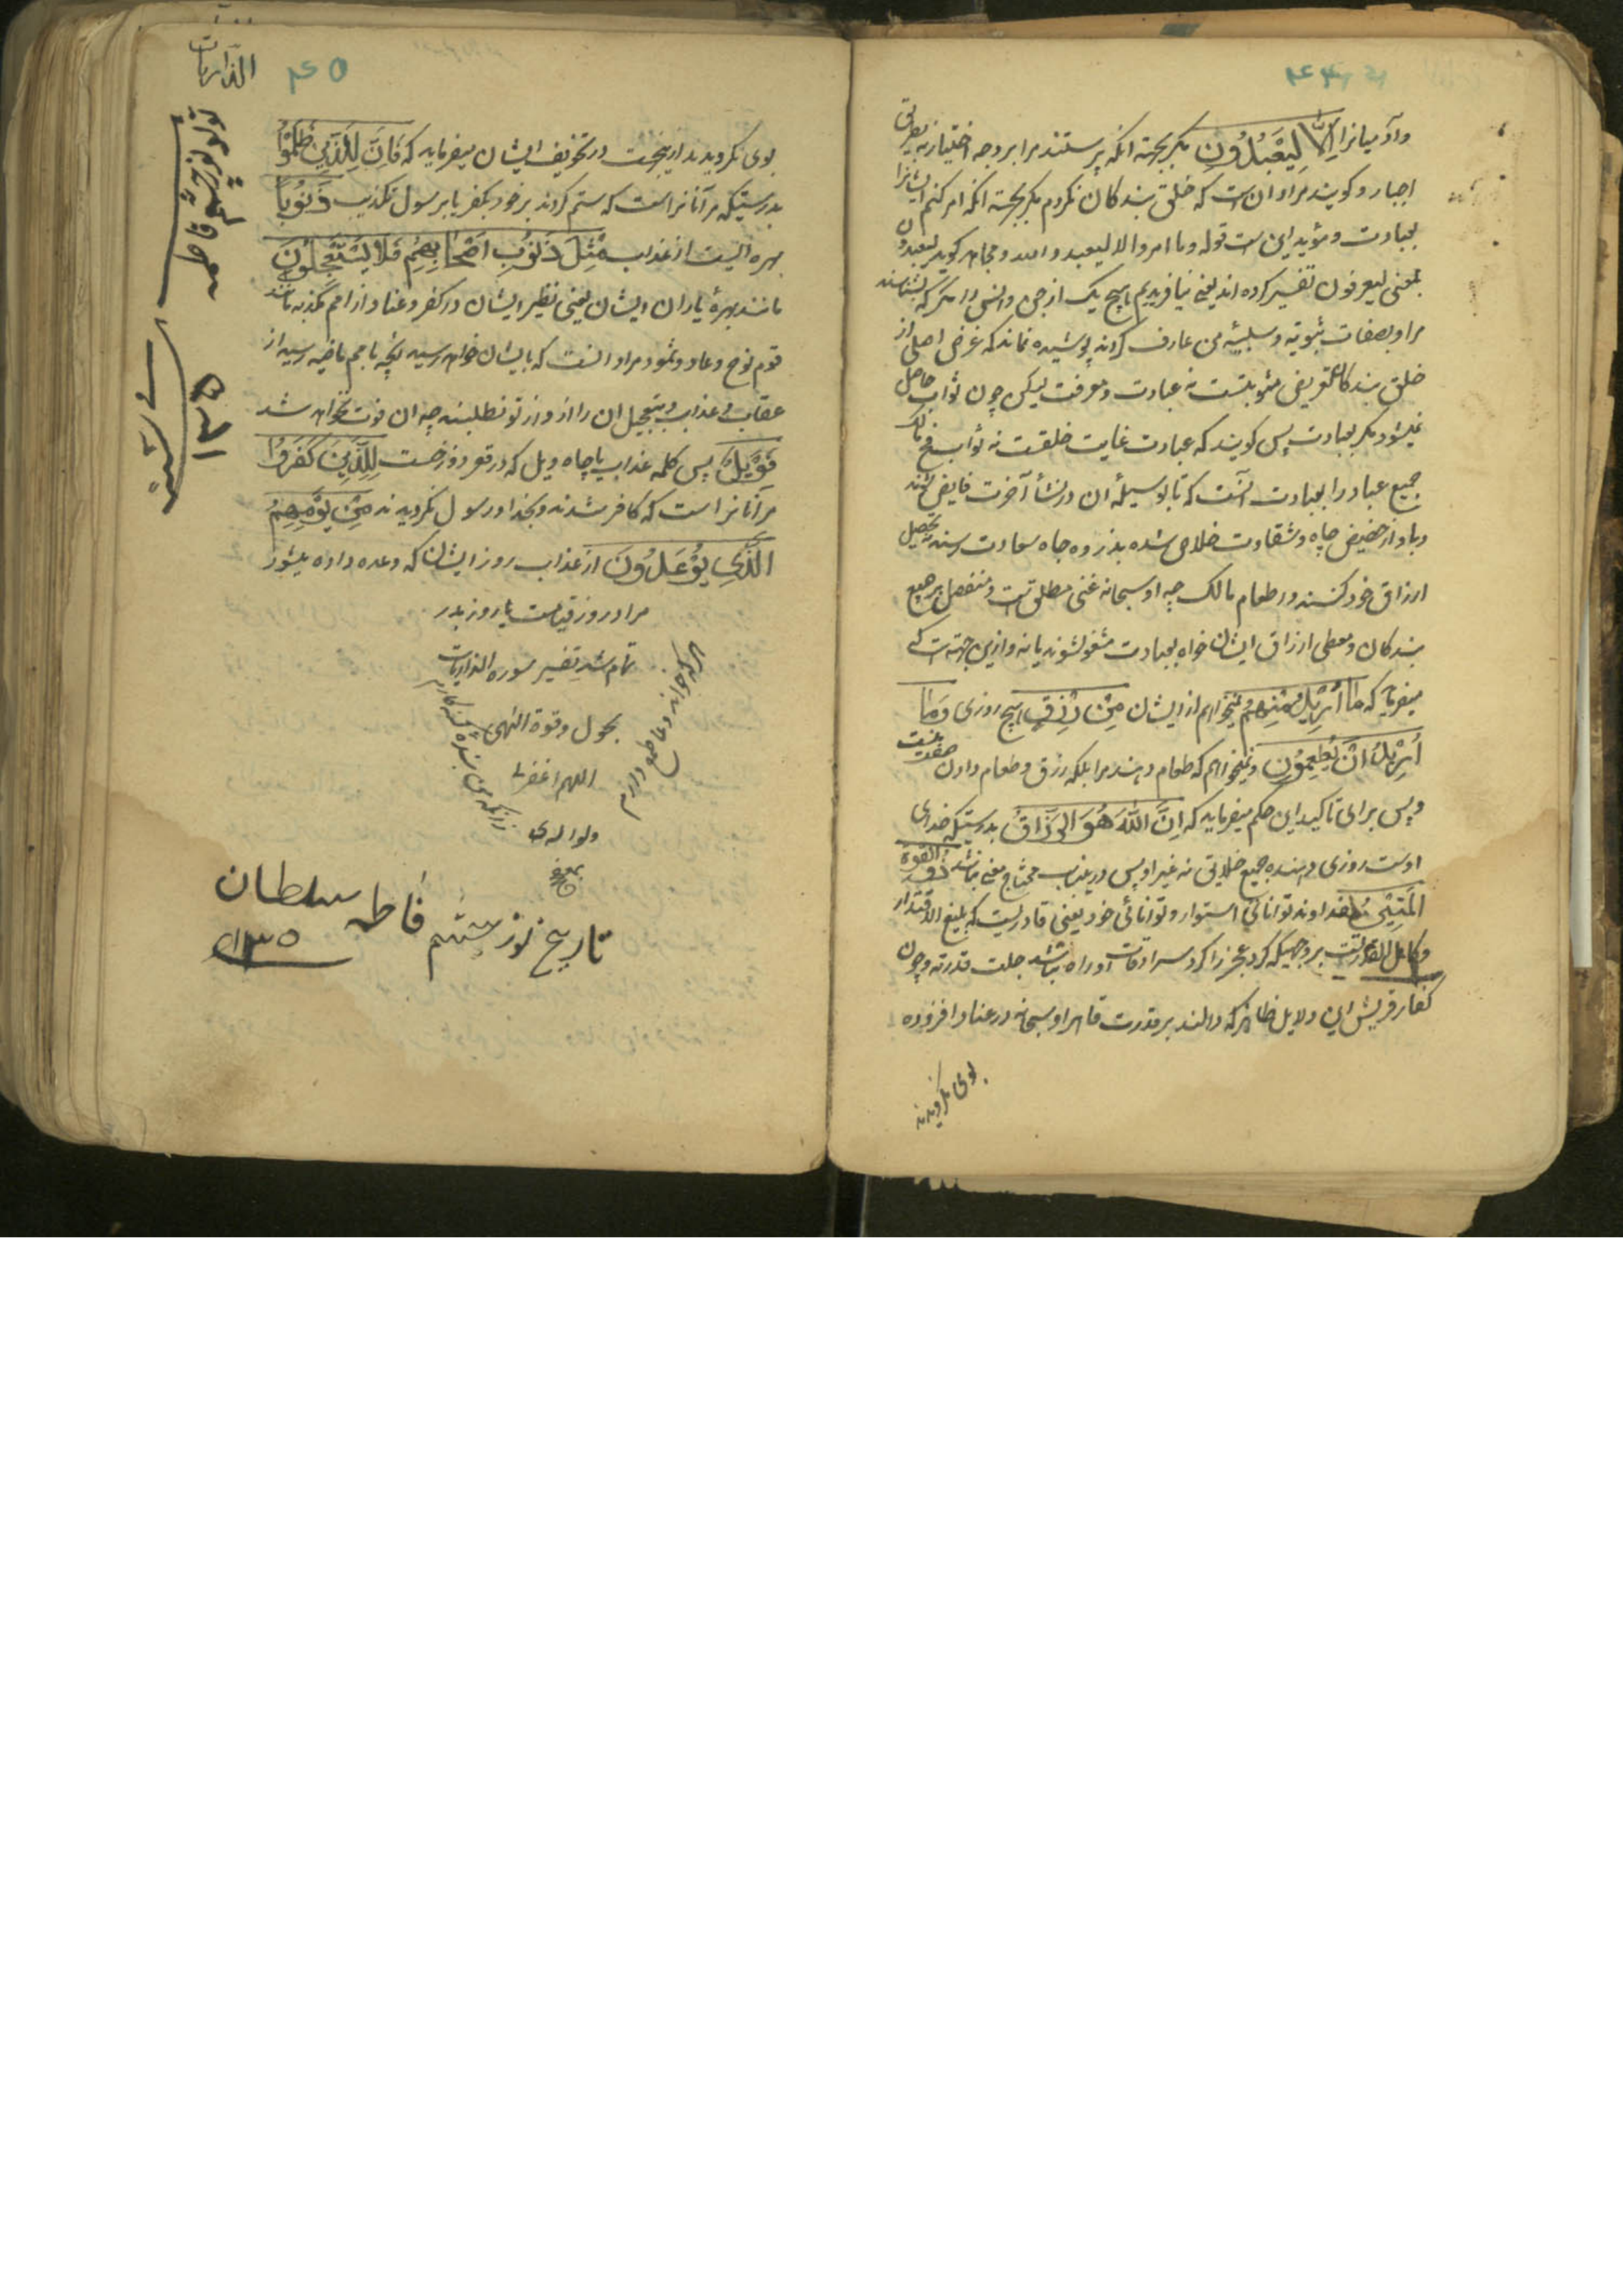 وآدمیانرا اِلَّا لِیَعْبُدُونِ مکر بجهة انکه پرستند مرا بر وجه اختیار نه بطریق
اجبار و کویند مراد ان است که خلق بندکان نکردم مکر بجهة انکه امر کنم ایشانرا
بعبادت و مؤید این است قوله وما امروا الا لیعبدوا الله و مجاهد کوید لیعبدون
بمعنی لیعرفون تفسیر کرده اند یعنی نیافریدیم هیچ یک از جن و انس را مکر که بشناسند
مرا و بصفات ثبوتیه و سلبیه من عارف کردند پوشیده نماند که غرض اصلی از
خلق بندکان تعریض مثوبتست نه عبادت و معرفت لیکن چون ثواب حاصل
نمیشود مکر بعبادت پس کویند که عبادت غایت خلقت نه ثواب
جمیع عباد را بعبادت آنست که تا بوسیله ان در نشأ آخرت فایض شوند
و از حضیض چاه شقاوت خلاص شده بذروه جاه سعادت رسند نه تحصیل
ارزاق خود کنند و اطعام مالک چه او سبحانه غنی مطلق است و متفضل بر جمیع
بندکان و معطی ارزاق ایشان خواه بعبادت مشغول شوند یا نه و ازین جهتست که
میفرماید که مَا اُرِیدُ مِنْهُمْ نمیخواهم از ایشان مِنْ رِزْقٍ هیچ روزی وَمَا
اُرِیدُ اَنْ یُطْعِمُونِ و نمیخواهم که طعام دهند مرا بلکه رزق و طعام دادن صفت منست
و پس برای تاکید این حکم میفرماید که اِنَّ اللّٰهَ هُوَ الرَّزَّاقُ بدرستیکه خدای
اوست روزی دهنده جمیع خلایق نه غیر او پس در ینباب محتاج معنی نباشد ذُو الْقُوَّةِ
الْمَتِینُ خداوند توانائی استوار و توانائی خود یعنی قادریست که بلیغ الاقتدار
و کامل القدرتست بر وجهیکه کرد عجز را کرد سرادقات او راه نباشد جلت قدرته و چون
کفار قریش این دلایل ظاهر که دالند بر قدرت قاهر او سبحانه در عناد افزوده
بوی نکرویدند
الذاریات
۴۵
بوی نکرویدند ازینجهت در تخویف ایشان میفرماید که فَاِنَّ لِلَّذِینَ ظَلَمُوا
بدرستیکه مر آنانراست که ستم کردند بر خود بکفر یا بر سول تکذیب ذَنُوبًا
بهره ایست از عذاب مِثْلَ ذَنُوبِ اَصْحَابِهِمْ فَلَا یَسْتَعْجِلُونِ
مانند بهرهٔ یاران ایشان یعنی نظیر ایشان در کفر و عناد از امم مکذبه مانند
قوم نوح و عاد و ثمود مراد انست که بایشان خواهد رسید انچه بامم ماضیه رسید از
عقاب و عذاب و بتعجیل ان را از تو نطلبند چه ان فوت نخواهد شد
فَوَیْلٌ پس کلمه عذاب یا چاه ویل که در قعر دوزخست لِلَّذِینَ کَفَرُوا
مر انانراست که کافر شدند و بخدا و رسول نکرویدند مِنْ یَوْمِهِمُ
الَّذِی یُوعَدُونَ از عذاب روز ایشان که وعده داده میشود
مراد روز قیامت یا روز بدر
تمام شد تفسیر سوره الذاریات
بحول وقوة الٰهی
اللهم اغفر لی
ولوالدی
هرکه خواند دعا طمع دارم
زانکه من بنده گنه کارم
تاریخ نورچشم فاطمه سلطان
۱۳۵
تولد نورچشم فاطمه